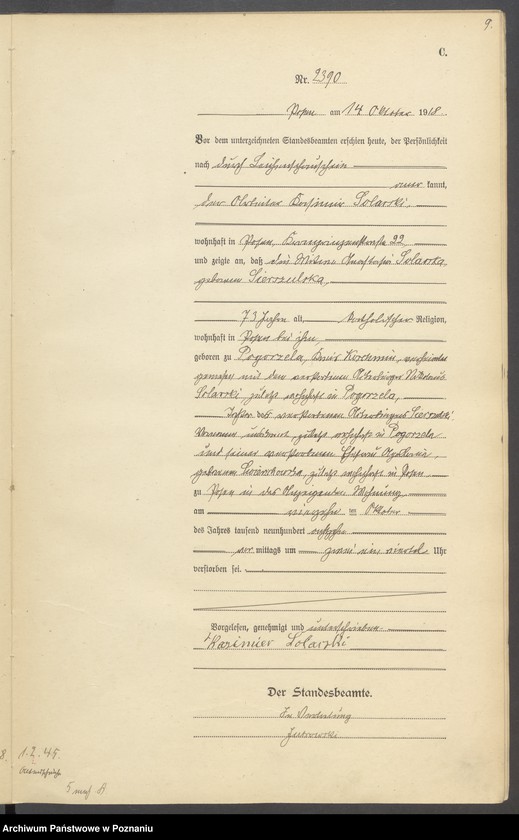 9.
C.
Nr. 2390
Posen am 14 Oktober 1918.
Vor dem unterzeichneten Standesbeamten erschien heute, der Persönlichkeit
nach durch Leichenschauschein
aner kannt,
der Arbeiter Kasimir Solarski,
wohnhaft in Posen, Kronprinzenstraße 22
und zeigte an, daß die Witwe Solarska,
geborene Sierszulska,
73 Jahre alt, katholischer Religion,
wohnhaft in Posen bei ihm,
geboren zu Pogorzela, Kreis Koschmin, verheiratet
gewesen mit dem verstorbenen Nikolaus
Solarski, zuletzt wohnhaft in Pogorzela,
Tochter des verstorbenen
unbekannt, zuletzt wohnhaft in Pogorzela
und seiner verstorbenen Ehefrau
geborenen zuletzt wohnhaft in Posen,
zu Posen in der Wohnung
am vierzehn ten Oktober
des Jahres tausend neunhundert achtzehn
vor mittags um zwei ein viertel Uhr
verstorben sei.
Vorgelesen, genehmigt und unterschrieben
Kazimier Solarski
Der Standesbeamte.
In Vertretung
8. 1.2.45.
Archiwum Państwowe w Poznaniu